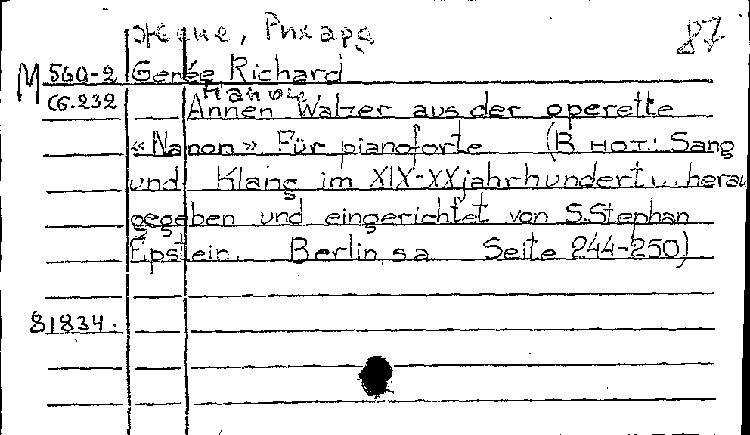 Жене, Рихард
87
М 560-2 Genée Richard
Сб.232 Annen Walzer aus der operette
«Nanon» Für pianoforte (В нот.: Sang
und Klang im XIX-XX jahrhundert... herau
gegeben und eingerichtet von S. Stephan
Epstein. Berlin, s.a Seite 244-250)
81834.